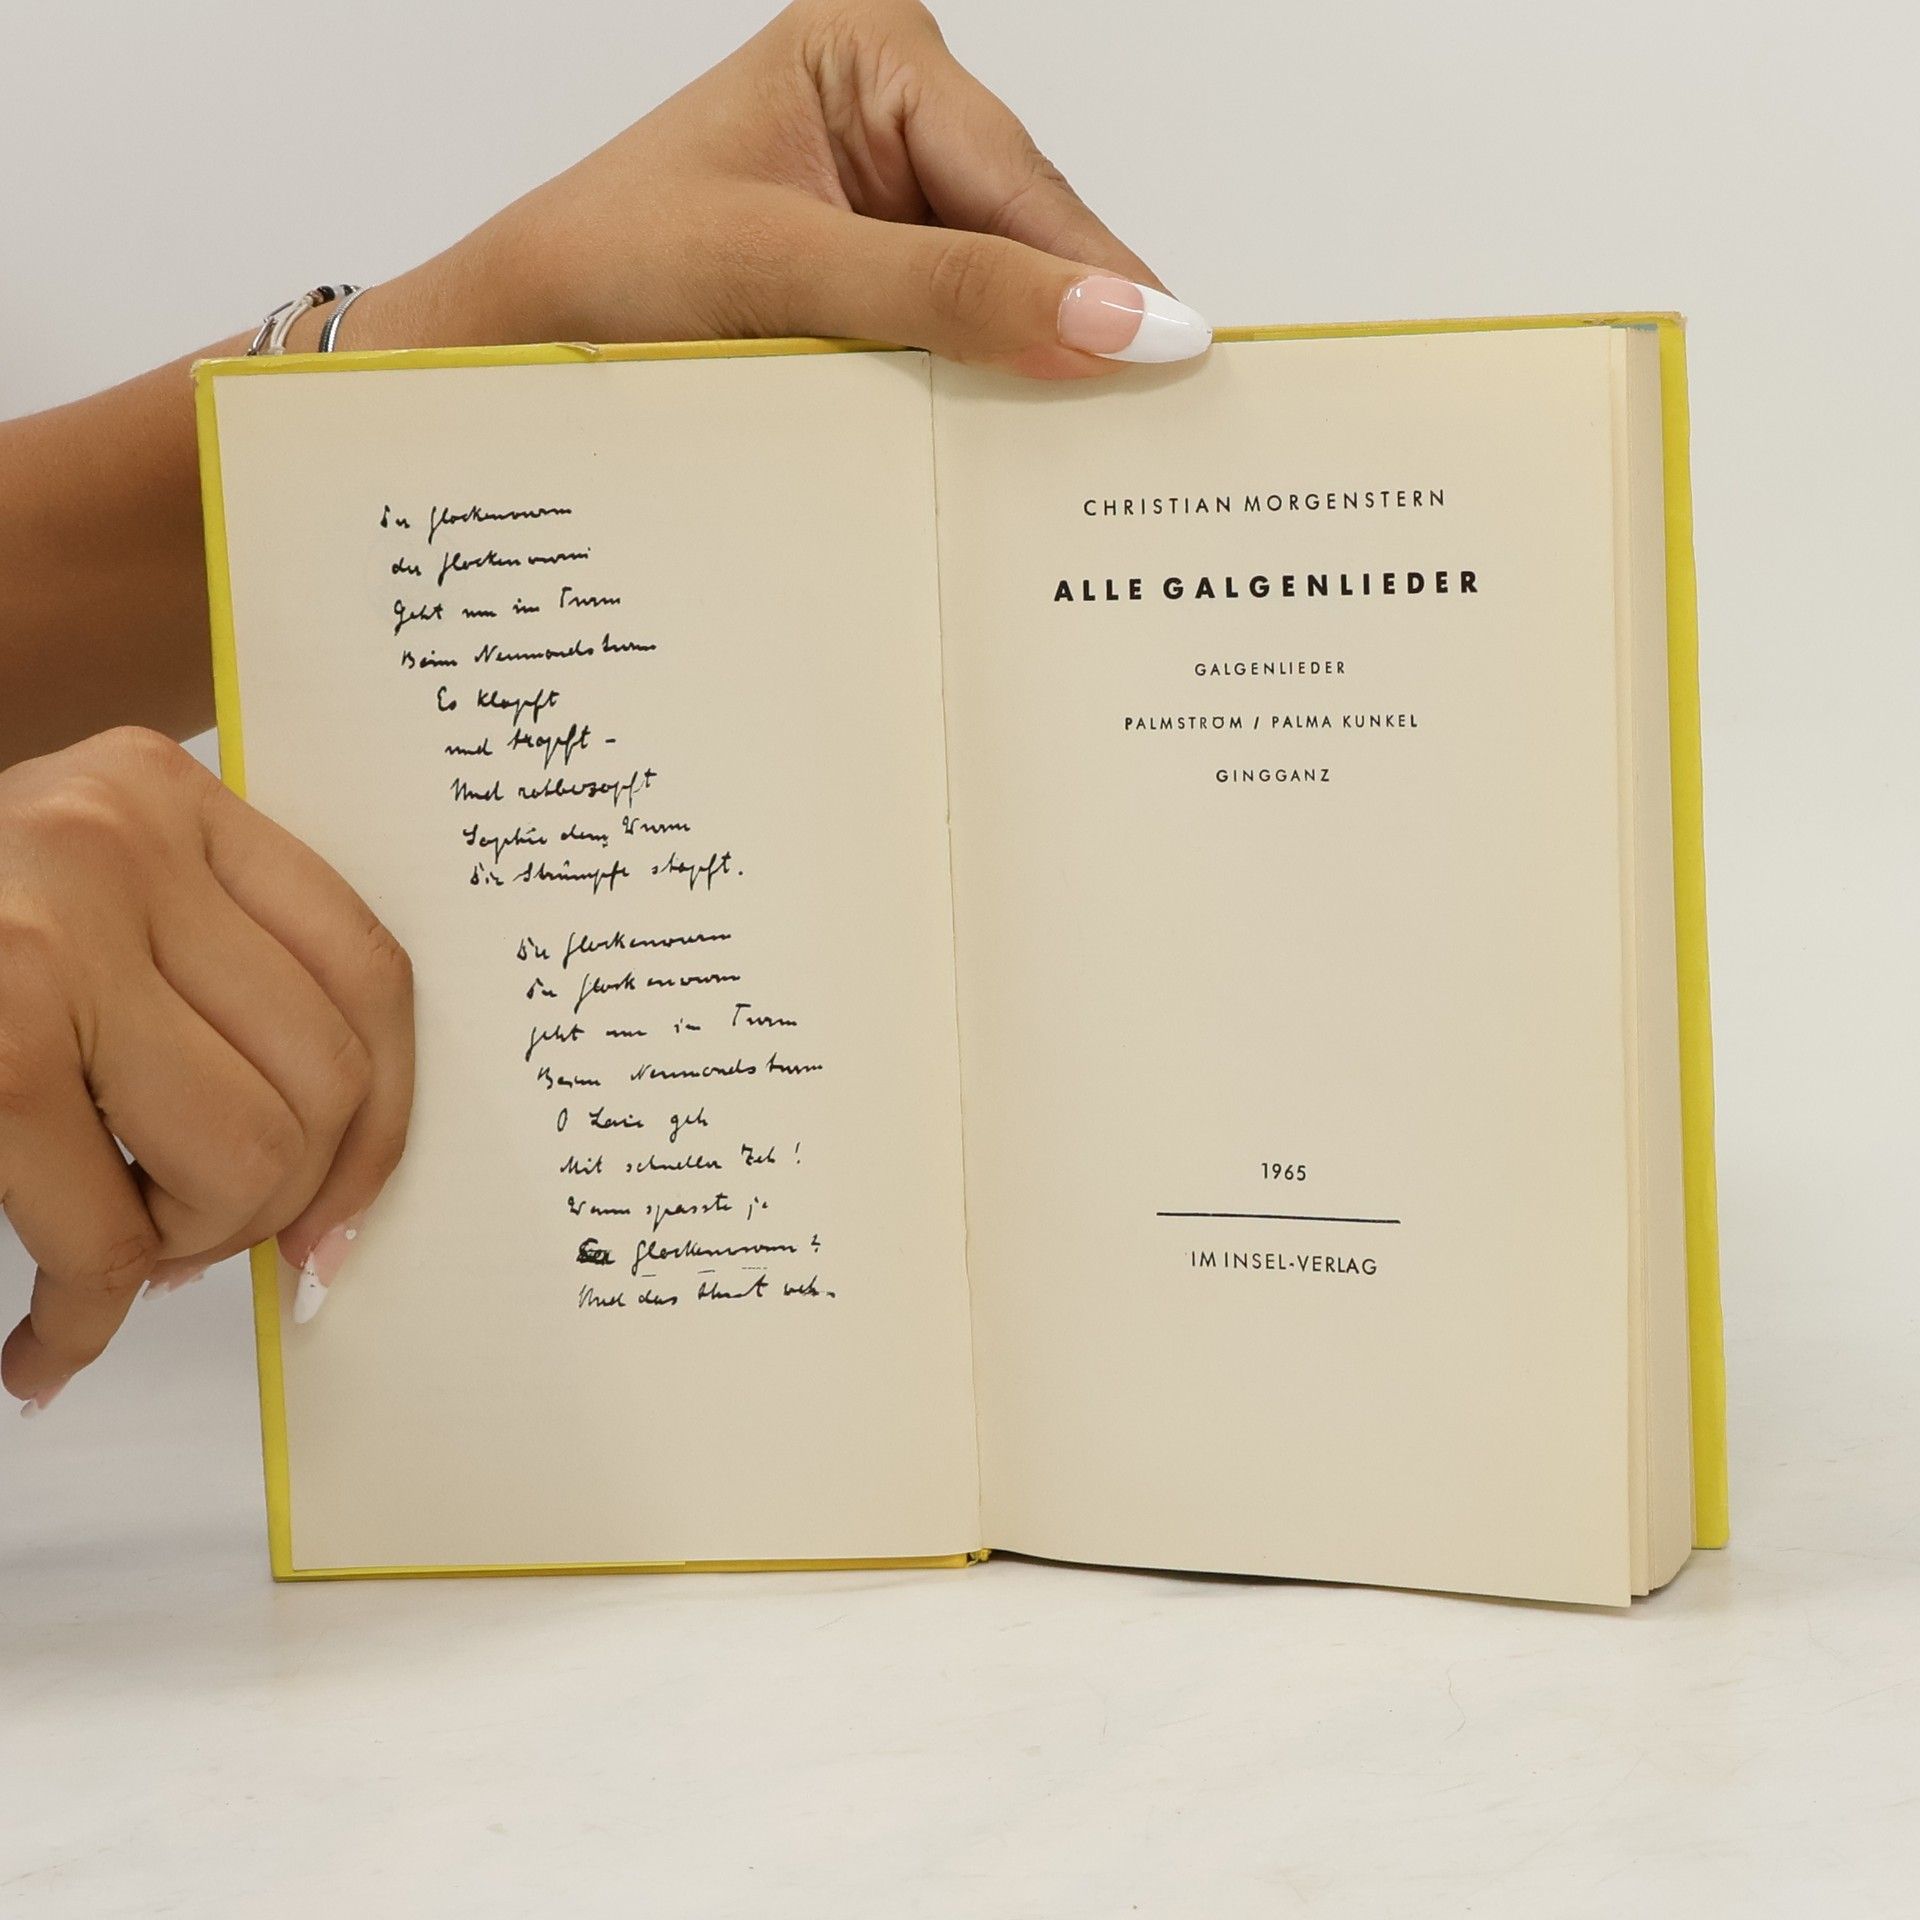 Der Glockenwurm
der Glockenwurm
Geht um im Turm
Beim Neumondsturm
Es klopft
und tropft –
Und rotbezopft
Sophie dem Wurm
Die Strümpfe stopft.
Der Glockenwurm
Der Glockenwurm
geht um im Turm
Beim Neumondsturm
O Laie geh
Mit schneller Zeh!
Wann spasste je
Glockenwurm?
Und das thut weh.
CHRISTIAN MORGENSTERN
ALLE GALGENLIEDER
GALGENLIEDER
PALMSTRÖM / PALMA KUNKEL
GINGGANZ
1965
IM INSEL-VERLAG